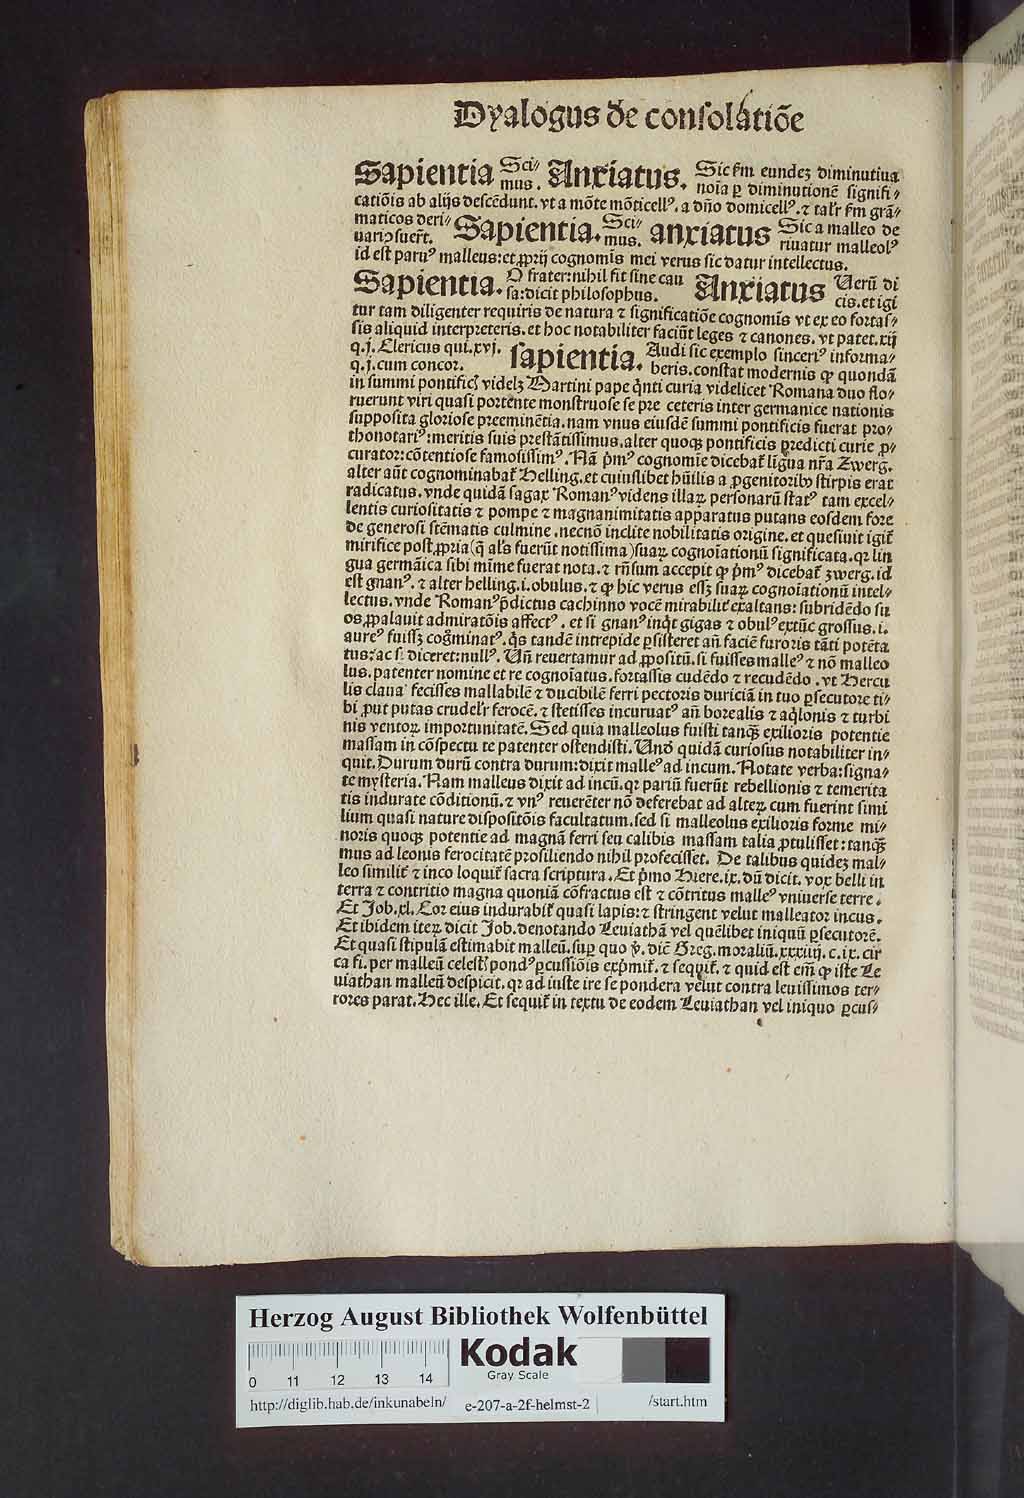 Dyalogus de consolatiōe
Sapientia Sci⸗ mus. Anxiatus. Sic ẜm eundeꝫ diminutiua
noīa ꝑ diminutionē signifi⸗
catiōis ab alijs descēdunt. vt a mōte mōticellꝰ. a dño domicellꝰ. ⁊ tal'r ẜm grā⸗
maticos deri⸗ uari fuer̄t. Sapientia. Sci⸗ mus. anxiatus Sic a malleo de
riuatur malleolꝰ
id est paruꝰ malleus: et ꝓprij cognomīs mei verus sic datur intellectus.
Sapientia. O frater: nihil fit sine cau sa: dicit philosophus. Anxiatus Uerū di
cis. et igi
tur tam diligenter requiris de natura ⁊ significatiōe cognomīs vt ex eo fortas⸗
sis aliquid interpreteris. et hoc notabiliter faciūt leges ⁊ canones. vt patet. xij
q. j. Clericus qui. xvj. q. j. cum concor. sapientia. Audi sic exemplo sinceriꝰ informa⸗
beris. constat modernis ꝙ quondā
in summi pontific̄ videlꝫ Martini pape q̇nti curia videlicet Romana duo flo⸗
ruerunt viri quasi portente monstruose se pre ceteris inter germanice nationis
supposita gloriose preeminētia. nam vnus eiusdē summi pontificis fuerat pro⸗
thonotariꝰ: meritis suis prestātissimus. alter quoqꝫ pontificis predicti curie ꝓ⸗
curator: cōtentiose famosissimꝰ. Nā p̄mꝰ cognomīe dicebat̄ līgua nr̄a Zwerg.
alter aūt cognominabat̄ Helling. et cuiuslibet hūilis a ꝓgenitoribꝰ stirpis erat
radicatus. vnde quidā sagax Romanꝰ videns illaꝝ personarū statꝰ tam excel⸗
lentis curiositatis ⁊ pompe ⁊ magnanimitatis apparatus putans eosdem fore
de generosi stēmatis culmine. necnō inclite nobilitatis origine. et quesiuit igit̄
mirifice post ꝓpria (q̄ al's fuerūt notissima) suaꝝ cognoīationū significata. qꝛ lin
gua germāica sibi mīme fuerat nota. ⁊ rn̄sum accepit ꝙ p̄mꝰ dicebat̄ zwerg. id
est gnanꝰ. ⁊ alter helling. i. obulus. ⁊ ꝙ hic verus essꝫ suaꝝ cognoīationū intel⸗
lectus. vnde Romanꝰ p̄dictus cachinno vocē mirabilit̄ exaltans: subridēdo su
os ꝓpalauit admiratōis affectꝰ. et si gnanꝰ inq̇t gigas ⁊ obulꝰ extūc grossus. i.
aureꝰ fuissꝫ cog̃minatꝰ. q̇s tandē intrepide ꝑsisteret añ faciē furoris tāti potēta
tus: ac si diceret: nullꝰ. Uñ reuertamur ad ꝓpositū. si fuisses malleꝰ ⁊ nō malleo
lus. patenter nomine et re cognoīatus. fortassis cudēdo ⁊ recudēdo. vt Hercu
lis claua fecisses mallabilē ⁊ ducibilē ferri pectoris duriciā in tuo ꝑsecutore ti⸗
bi ꝓut putas crudel'r ferocē. ⁊ stetisses incuruatꝰ añ borealis ⁊ aq̇lonis ⁊ turbi
nis ventoꝝ importunitatē. Sed quia malleolus fuisti tanqꝫ exilioris potentie
massam in cōspectu te patenter ostendisti. Unde quidā curiosus notabiliter in⸗
quit. Durum durū contra durum: dixit malleꝰ ad incum. Notate verba: signa⸗
te mysteria. Nam malleus dixit ad incū. qꝛ pariū fuerūt rebellionis ⁊ temerita
tis indurate cōditionū. ⁊ vnꝰ reuerēter nō deferebat ad alteꝝ. cum fuerint simi
lium quasi nature dispositōis facultatum. sed si malleolus exilioris forme mi⸗
noris quoqꝫ potentie ad magnā ferri seu calibis massam talia ꝓtulisset: tanqꝫ
mus ad leonis ferocitatē prosiliendo nihil profecisset. De talibus quideꝫ mal⸗
leo similit̄ ⁊ inco loquit̄ sacra scriptura. Et p̄mo Hiere. ix. dū dicit. vox belli in
terra ⁊ contritio magna quoniā cōfractus est ⁊ cōtritus malleꝰ vniuerse terre.
Et Job. xl. Cor eius indurabit̄ quasi lapis: ⁊ stringent velut malleator incus.
Et ibidem iteꝝ dicit Job. denotando Leuiathā vel quēlibet iniquū ꝑsecutorē.
Et quasi stipulā estimabit malleū. suꝑ quo ꝟ. dic̄ Greg. moraliū. xxxiiij. c. ix. cir
ca fi. per malleū celestꝭ pondꝰ ꝑcussiōis exp̄mit̄. ⁊ sequit̄. ⁊ quid est em̄ ꝙ iste Le
uiathan malleū despicit. qꝛ ad iuste ire se pondera velut contra leuissimos ter⸗
rores parat. Hec ille. Et sequit̄ in textu de eodem Leuiathan vel iniquo ꝑcus⸗
Herzog August Bibliothek Wolfenbüttel
0 11 12 13 14
Kodak
Gray Scale
http://diglib.hab.de/inkunabeln/ e-207-a-2f-helmst-2 /start.htm